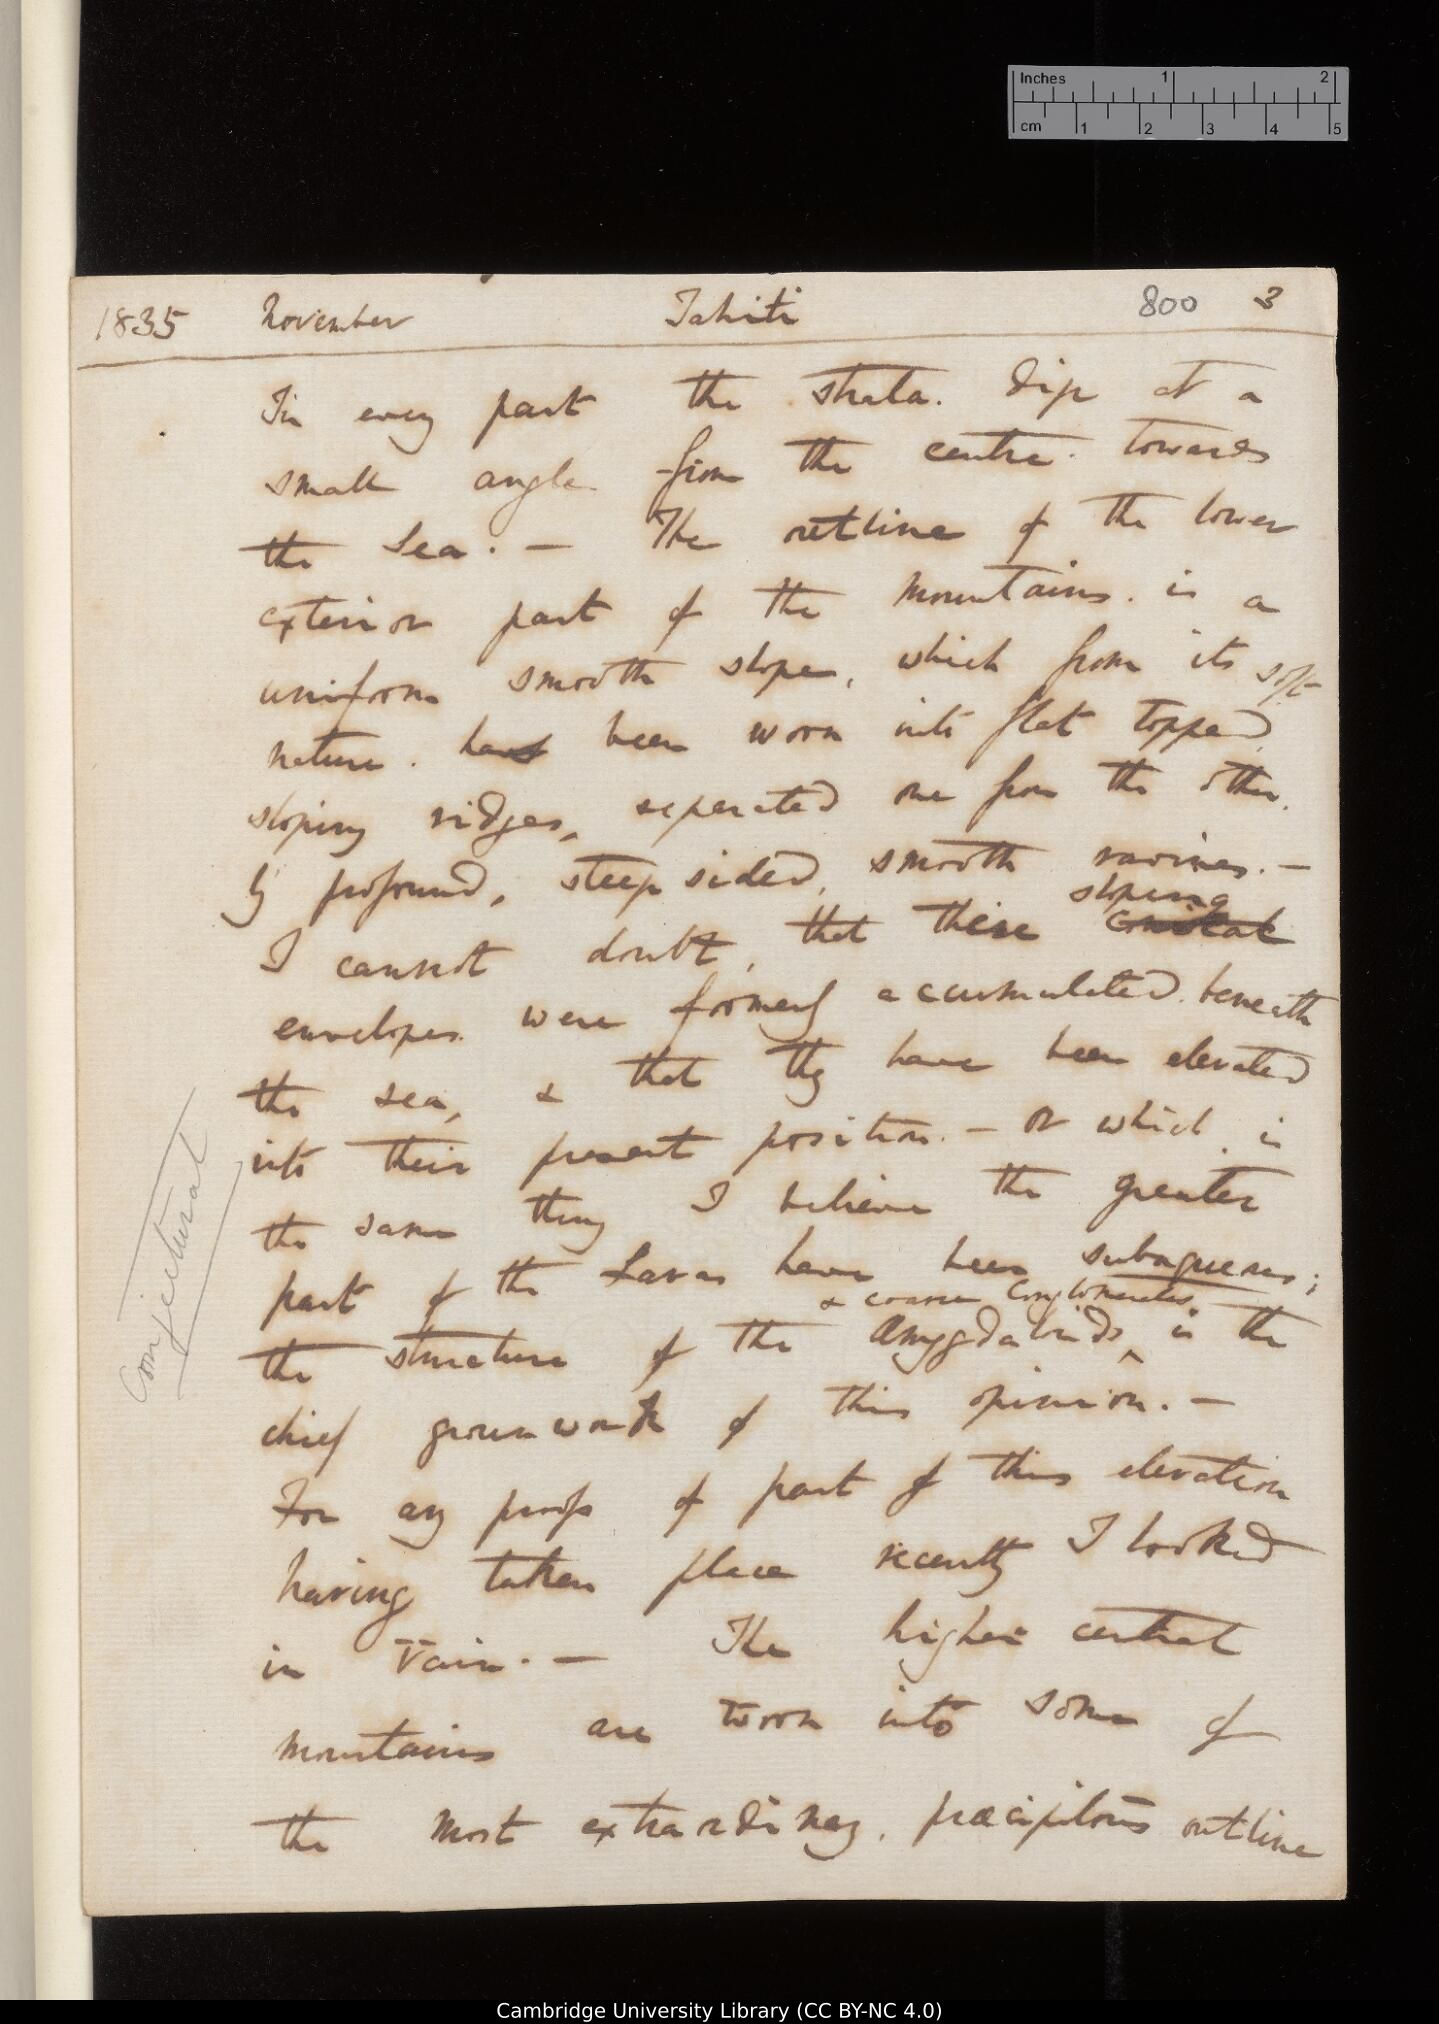 Inches 1 2
cm 1 2 3 4 5
1835 November Tahiti 800 3
In every part the strata. dip at a
small angle from the centre. towards
the Sea. — The outline of the lower
exterior part of the mountains. is a
uniform smooth slope, which from its soft
nature. has been worn into flat topped
sloping ridges, separated one from the other.
by profound, steep sided, smooth ravines. —
sloping
I cannot doubt, that these conical
envelopes were formerly accumulated beneath
the sea, & that they have been elevated
into their present position. — or which is
the same thing I believe the greater
part of the Lavas have been subaqueous;
& coarse Conglomerates
the structure of the Amygdaloids ^ is the
chief grounwork of this opinion. —
For any proofs of part of this elevation
having taken place recently I looked
in vain. — The higher central
mountains are worn into some of
the most extraordinary, præcipitous outline
Conjectural
Cambridge University Library (CC BY-NC 4.0)